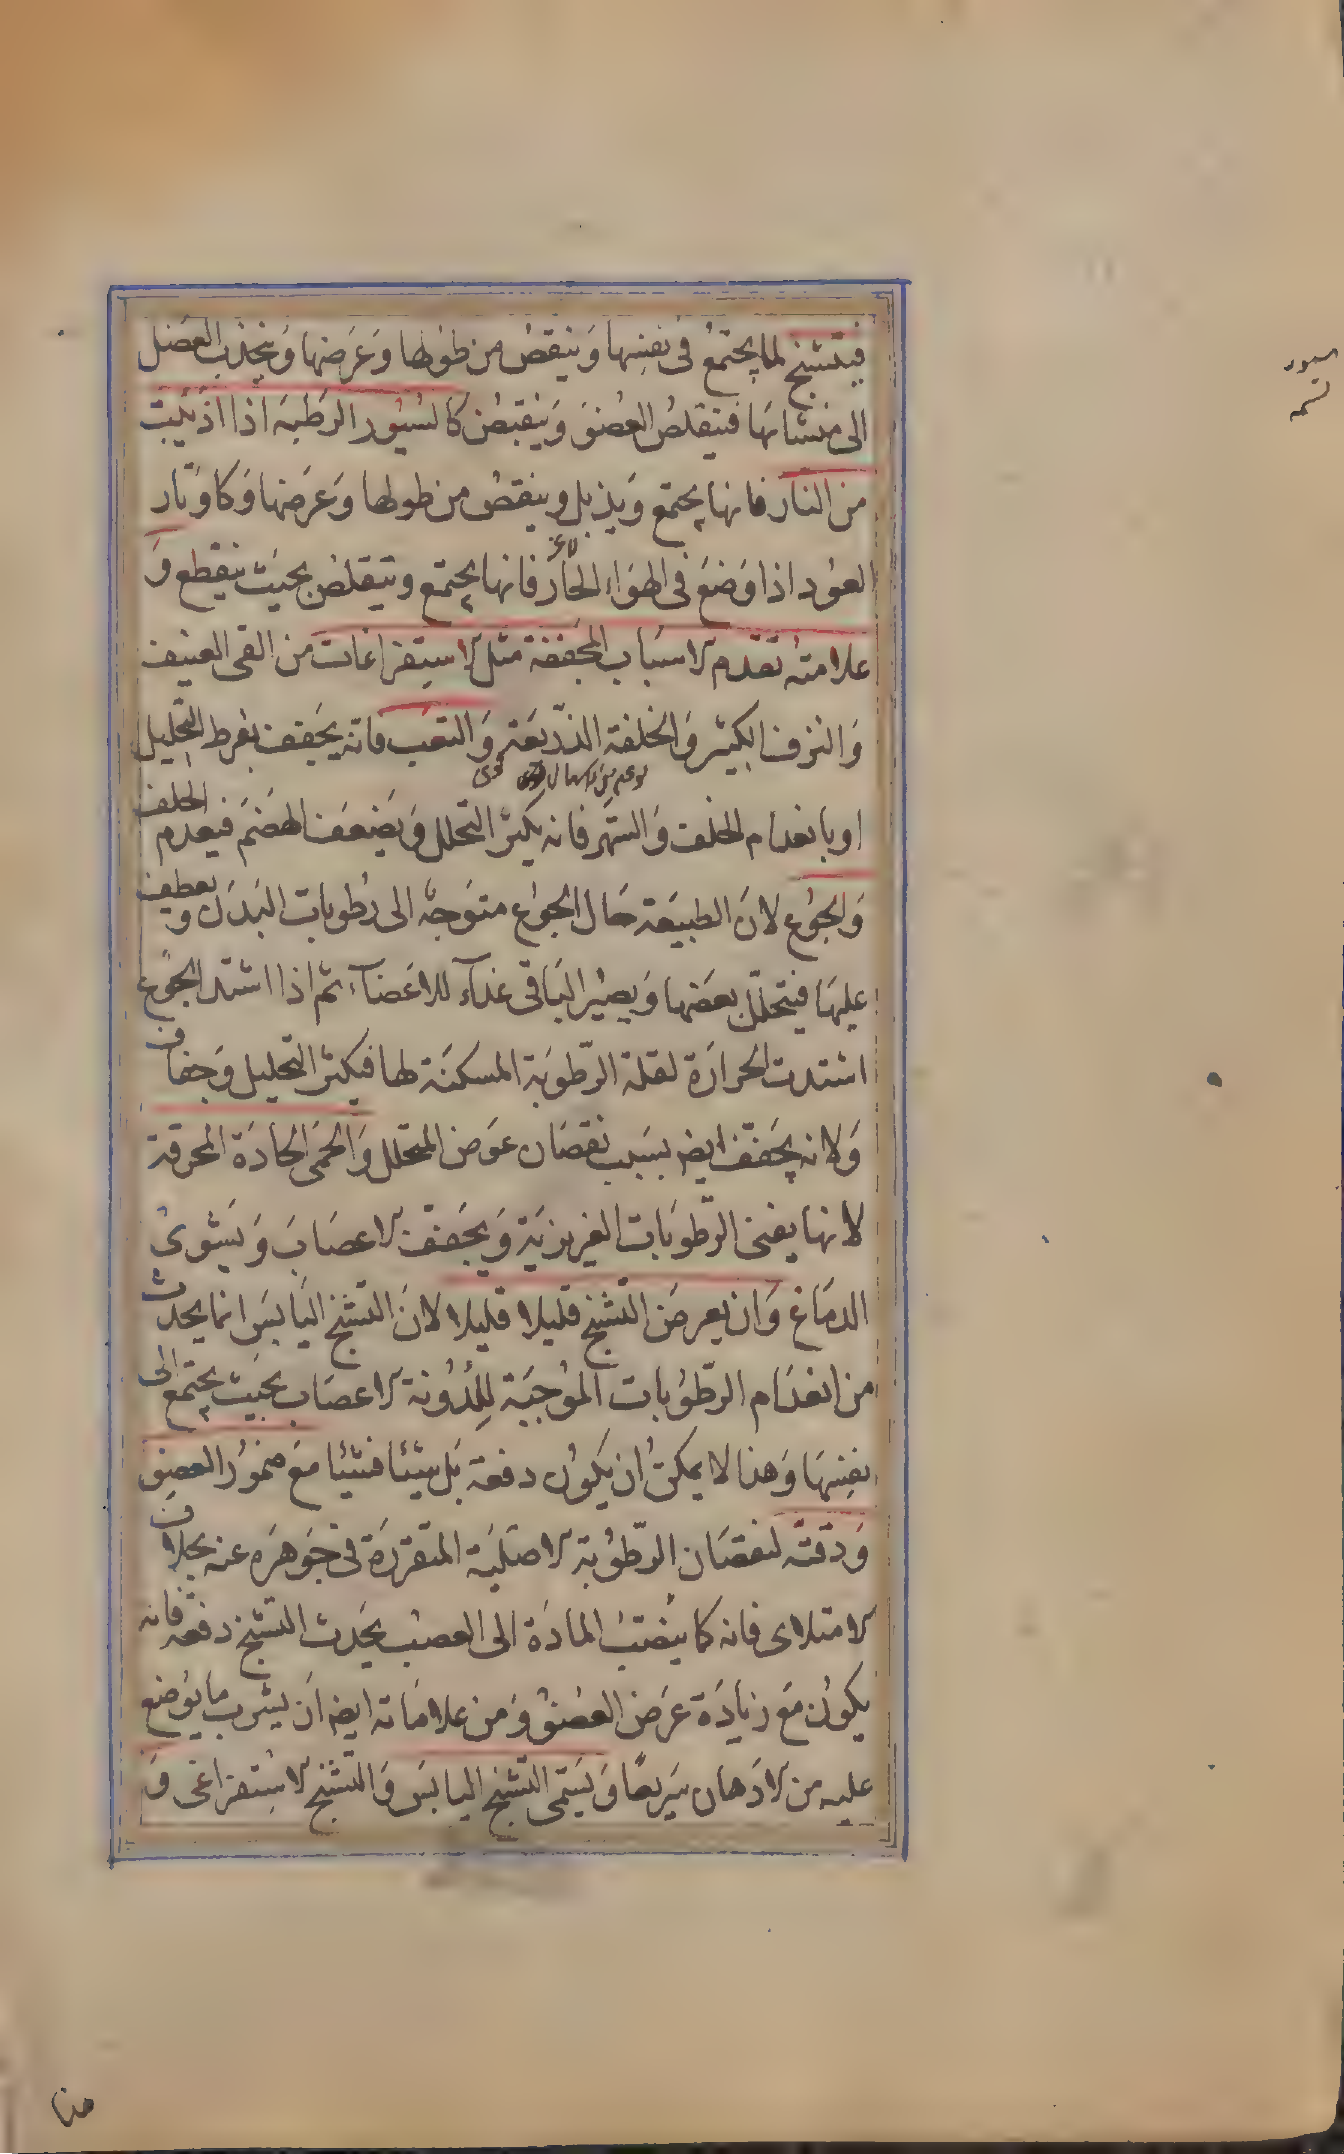 فيتشنج لما يجتمع فى نفسها وَ ينقصُ من طولها وَ عَرَضها وَ ينجذب العَضل
الى منشائها فيتقلصُ العُضوَ وَ ينقبضُ كالسُيُور الرَطبة اذا ادنيت
من النار فانها يجتمع وَ يذبل و ينقصُ من طولها وَ عَرَضها وَ كاوتار
العوُد اذا وَضعَ فى الهوَاء الحارّ فانها يجتمع و يتقلص بحيَث ينقطع وَ
علامته تقدم الاسبَاب المجففة مثل الاستفراغات من القى العنيف
وَ النزف الكثير وَ الخلفة الذريعَة وَ التعَب فانه يجَفف بفرط التحليل
او بانعدام الخلف وَ السَهر فانه يكثر التحلل وَ يضعَف الهضَم فيعدم الخلف
وَ الجوُع لانَ الطبيَعة حَال الجوُع متوَجهٌ الى رطوبات البَدَن وَ يعطف
عليهَا فيتحلل بعَضها وَ يصيُر البَاقى غذآء للاعَضآء ثم اذا اشتد الجوُع
اشتدت الحرارَة لقلة الرّطوبَة المسكنَة لها فيكثر التحليل وَ جفاف
وَ لانه يجَفّف ايضہ بسَبب نقصَان عوَض المتحَلل وَ الحمَى الحادَة المحرقة
لانها يفنى الرّطوبَات الغريزيَة وَ يجَفّف الاعصَابَ وَ يَشوىُ
الدمَاغ وَ ان يعرضَ التشنج قليلا قليلا لانَ التشنج اليَابسَ انما يحدث
من انعدَام الرطّوُبات الموُجبَة لِلدُونة الاعصَاب بحَيث يجتمع الى
نفسِهَا وَ هذا لا يمكنُ ان يكوُن دفعة بَل شيئا فشيئا معَ ضموُر العضوِ
وَ دقتّه لنقصَان الرّطوُبة الاصَليَة المتقررَة فى جوَهرَه عنه بخلاف
الامتلاى فانه كما ينصّبُ المادَة الى العصَب يحَدث التشنج دفعَة فانه
يكوُن مَع زيادَة عَرَض العضوُ وَ من علامَاته ايضہ ان يشرب ما يوُضع
عليه من الادَهان سَريعًا وَ يسَمى التشنج اليابسَ وَ التشنج الاستفراغى وَ
سيور
تسمه